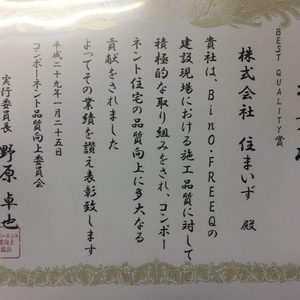 BEST QUALITY賞
株式会社 住まいず 殿
貴社は、Bino・FREEQの
建設現場における施工品質に対して
積極的な取り組みをされ、コンポー
ネント住宅の品質向上に多大なる
貢献をされました
よってその業績を讃え表彰致します
平成二十九年一月二十五日
コンポーネント品質向上委員会
実行委員長 野原 卓也